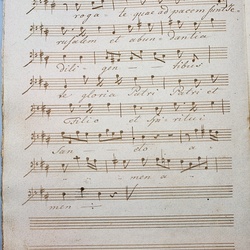 roga - te quae ad pacem sunt Je -
rusalem et abun - dantia
dili - gen - tibus
te gloria Patri Patri et
Filio et Spiritui
San - cto a -
- men a -
men